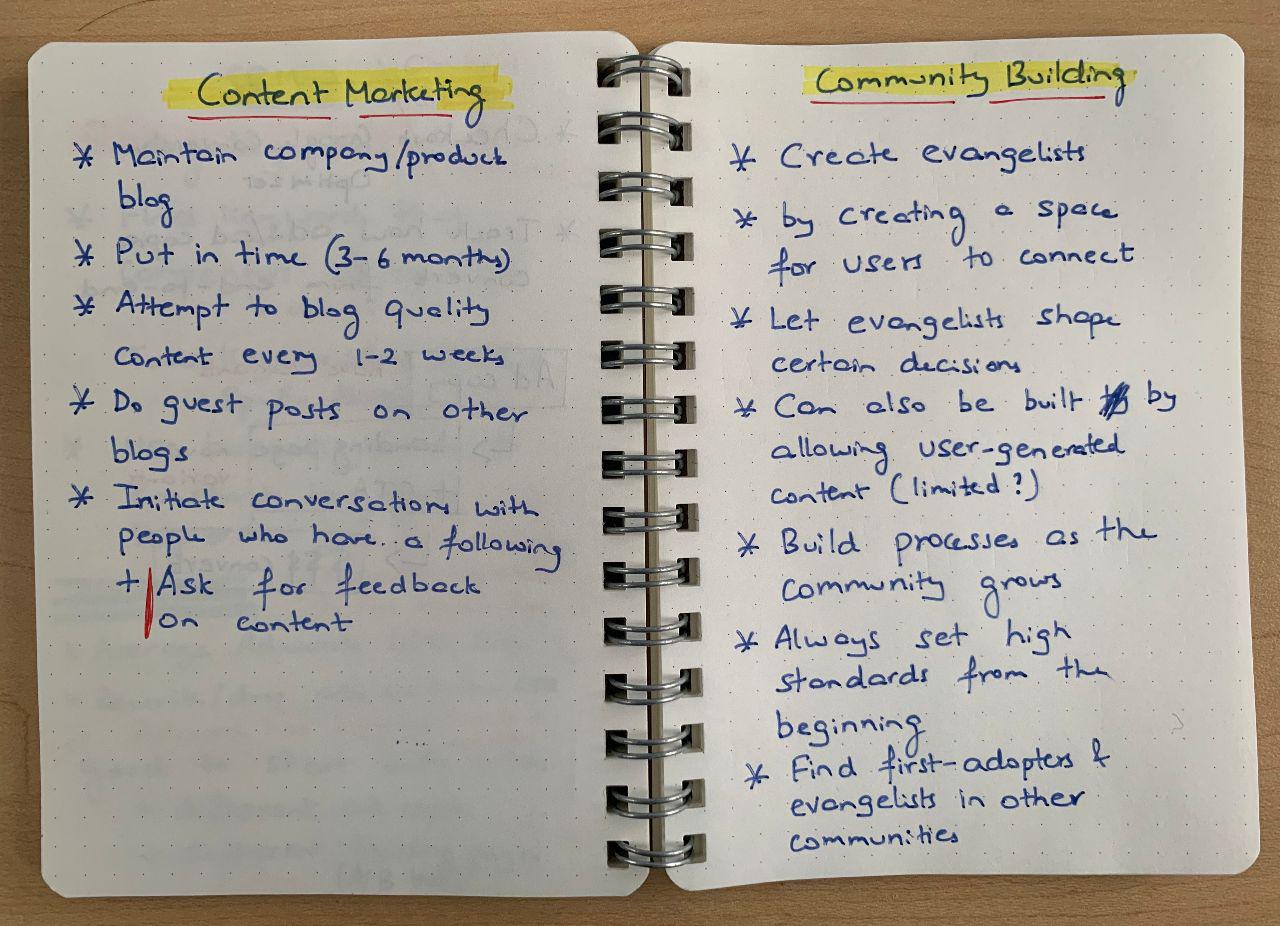 Content Marketing
* Maintain company/product
blog
* Put in time (3-6 months)
* Attempt to blog quality
content every 1-2 weeks
* Do guest posts on other
blogs
* Initiate conversations with
people who have a following
+ Ask for feedback
on content
Community Building
* Create evangelists
* by creating a space
for users to connect
* Let evangelists shape
certain decisions
* Can also be built by
allowing user-generated
content (limited?)
* Build processes as the
community grows
* Always set high
standards from the
beginning
* Find first-adopters &
evangelists in other
communities